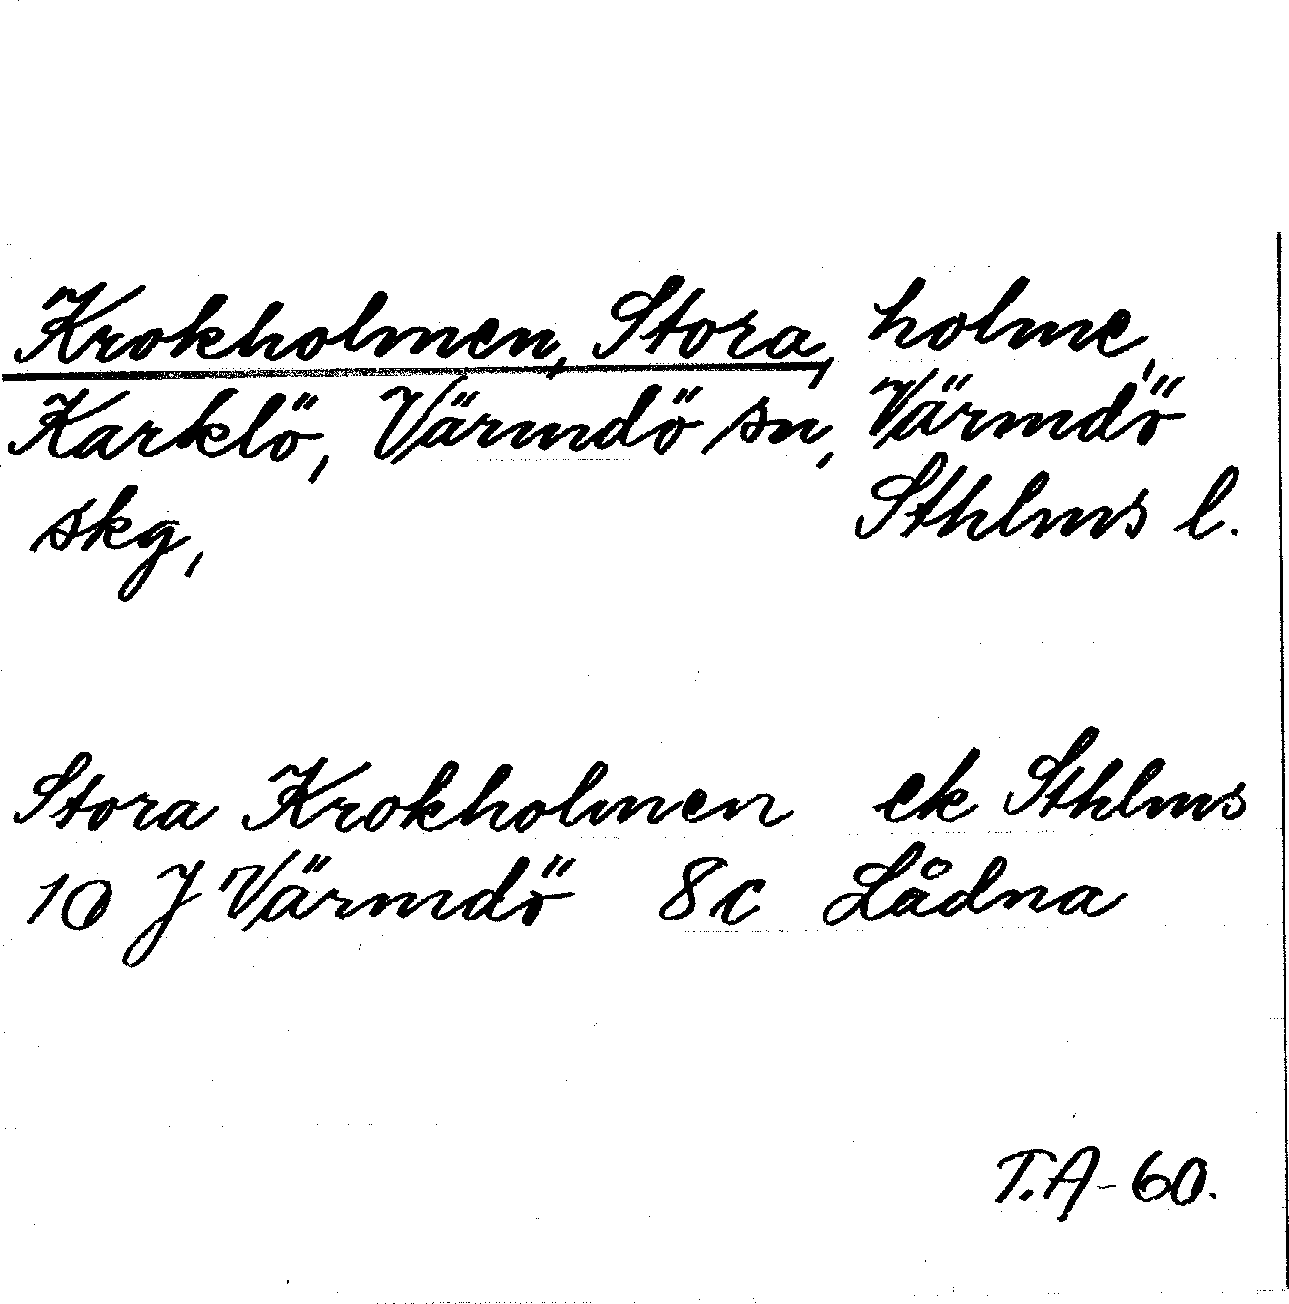 Krokholmen, Stora, holme,
Karklö, Värmdö sn, Värmdö
skg, Sthlms l.
Stora Krokholmen ek Sthlms
10 J Värmdö 8c Lådna
T.A-60.